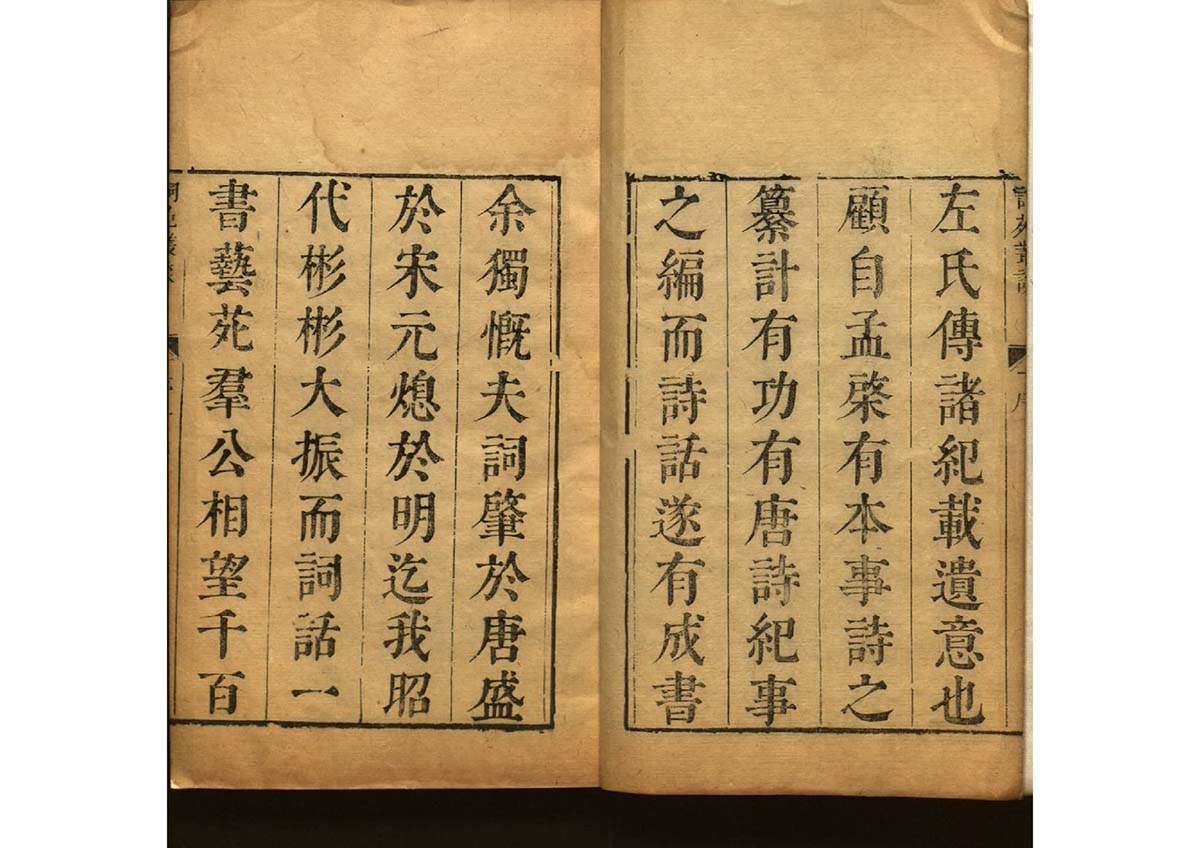 詞苑叢談
序
左氏傳諸紀載遺意也
顧自孟棨有本事詩之
纂計有功有唐詩紀事
之編而詩話遂有成書
余獨慨夫詞肇於唐盛
於宋元熄於明迄我昭
代彬彬大振而詞話一
書藝苑羣公相望千百